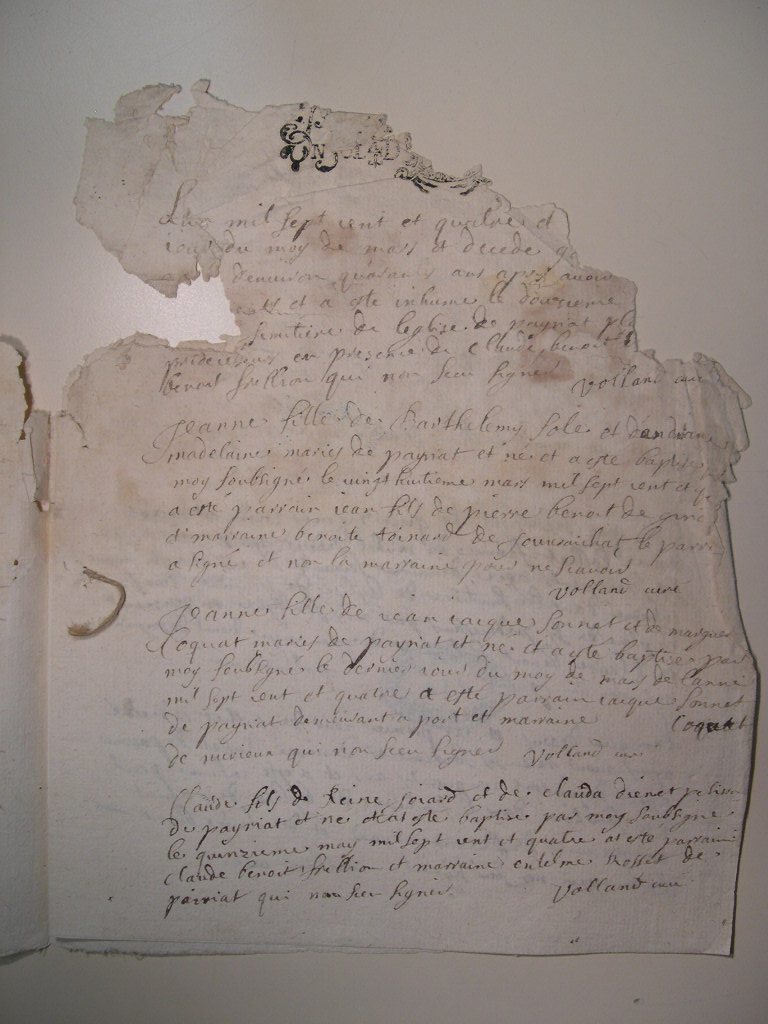 mil sept cent et quatre et
jour du moy de mars et decede
denuiron quarante ans apres avoir
et a este inhume le dousieme
simitiere de leglise de payriat
predecesseurs en presence de Claude benoit
benoit frellion qui non sceu signer Volland cure
Jeanne fille de Barthelemy sole et
madelaine maries de payriat et ne et a este baptise
moy soubsigne le vingt huitieme mars mil sept cent et
a esté parrain jean fils de pierre benoit de
et marraine benoite toinard de le parrain
a signé et non la marraine pour ne scavoir
Volland cure
Jeanne fille de jean jacque sonnet et de
Coquat maries de payriat et ne et a esté baptise par
moy soubsigné le dernier jour du moy de mars de lanné
mil sept cent et quatre a este parrain jacque sonnet
de payriat demeurant a port et marraine Coquat
de nurieux qui non sceu signer Volland cure
Claude fils de Reine et de clauda
de payriat et ne et a este baptise par moy soubsigne
le quinzieme may mil sept cent et quatre at este parrain
claude benoit frellion et marraine de
pairiat qui non sceu signer Volland cure